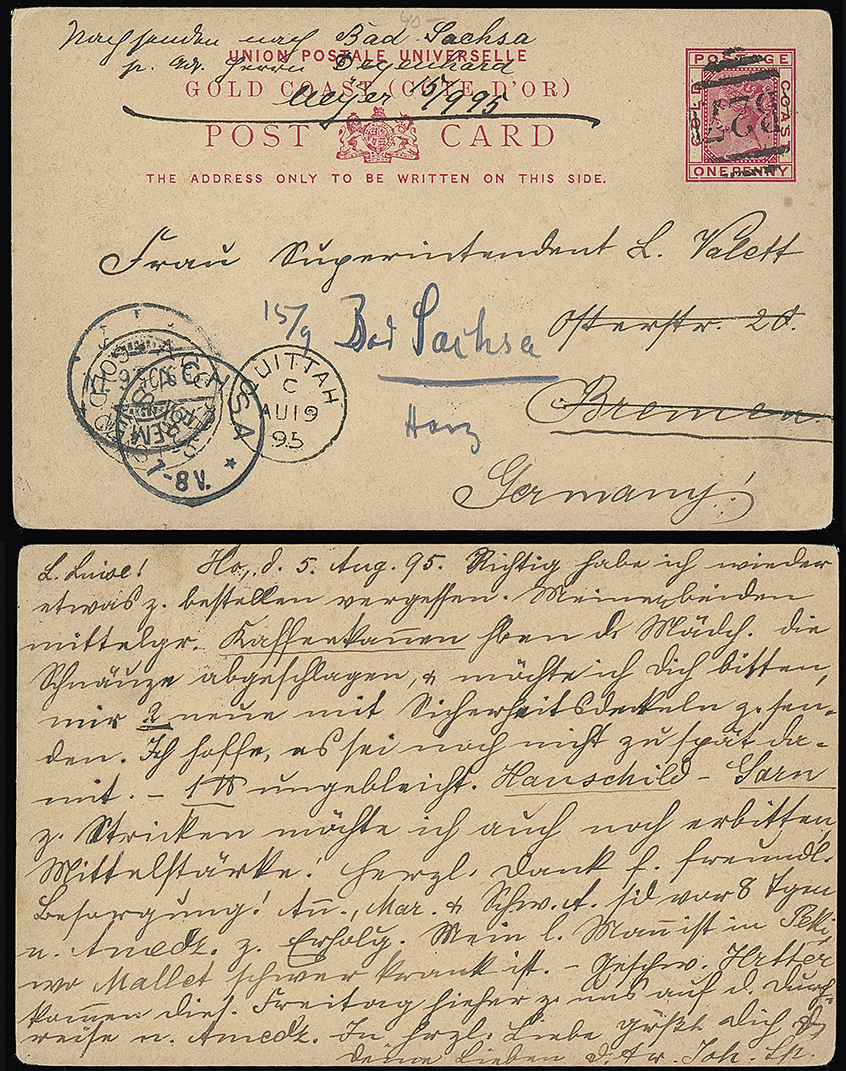 40-
Nachsenden nach Bad Sachsa
UNION POSTALE UNIVERSELLE
p. Adr. Herrn Degenhard
GOLD COAST (CÔTE D'OR)
Meyer 15/9 95
POST CARD
THE ADDRESS ONLY TO BE WRITTEN ON THIS SIDE.
POSTAGE
GOLD COAST
ONE PENNY
Frau Superintendent L. Valett
Osterstr. 20.
15/9 Bad Sachsa
Bremen
Harz
Germany!
QUITTAH
C
AU 19
95
SACHSA
7-8V.
BREMEN
L. Luise! Ho, d. 5. Aug. 95. Richtig habe ich wieder
etwas z. bestellen vergessen. Meinen beiden
mittelgr. Kaffeekannen hben d. Mädch. die
Schnäuze abgeschlagen, & möchte ich Dich bitten,
mir 2 neue mit Sicherheitsdeckeln z. sen-
den. Ich hoffe, es sei noch nicht zu spät da-
mit. – 1 ℔ ungebleicht. Hauschild-Garn
z. Stricken möchte ich auch noch erbitten,
Mittelstärke! Herzl. Dank f. freundl.
Besorgung! An., Mar. & Schw. A. sid vor 8 Tgen
n. Amedz. z. Erholg. Mein l. Mann ist in
wo Mallet schwer krank ist. – Geschw.
kommen dies. Freitag hieher z. uns auf d. Durch-
reise n. Amedz. In hrzl. Liebe grüßt Dich &
deine Lieben d. tr. Joh.